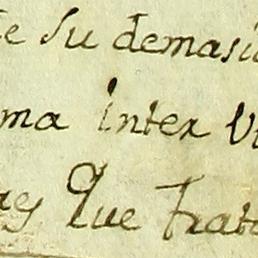 de su demasi
ma inter vi
res Que trat